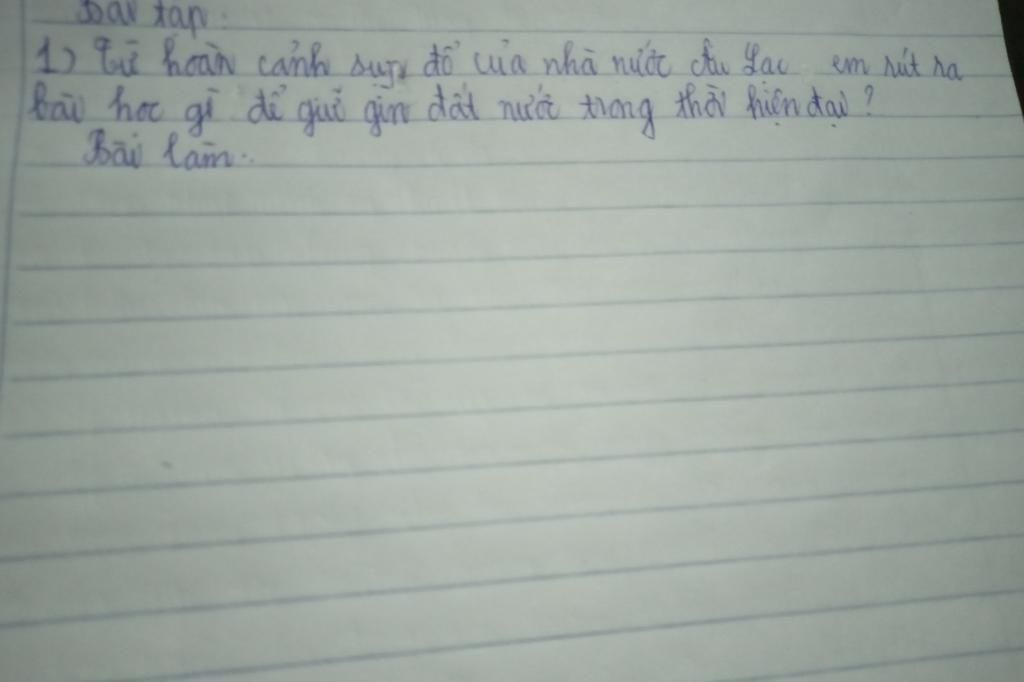 Bài tập:
1) Từ hoàn cảnh sụp đổ của nhà nước Âu Lạc em rút ra
bài học gì để giữ gìn đất nước trong thời hiện đại?
Bài làm: